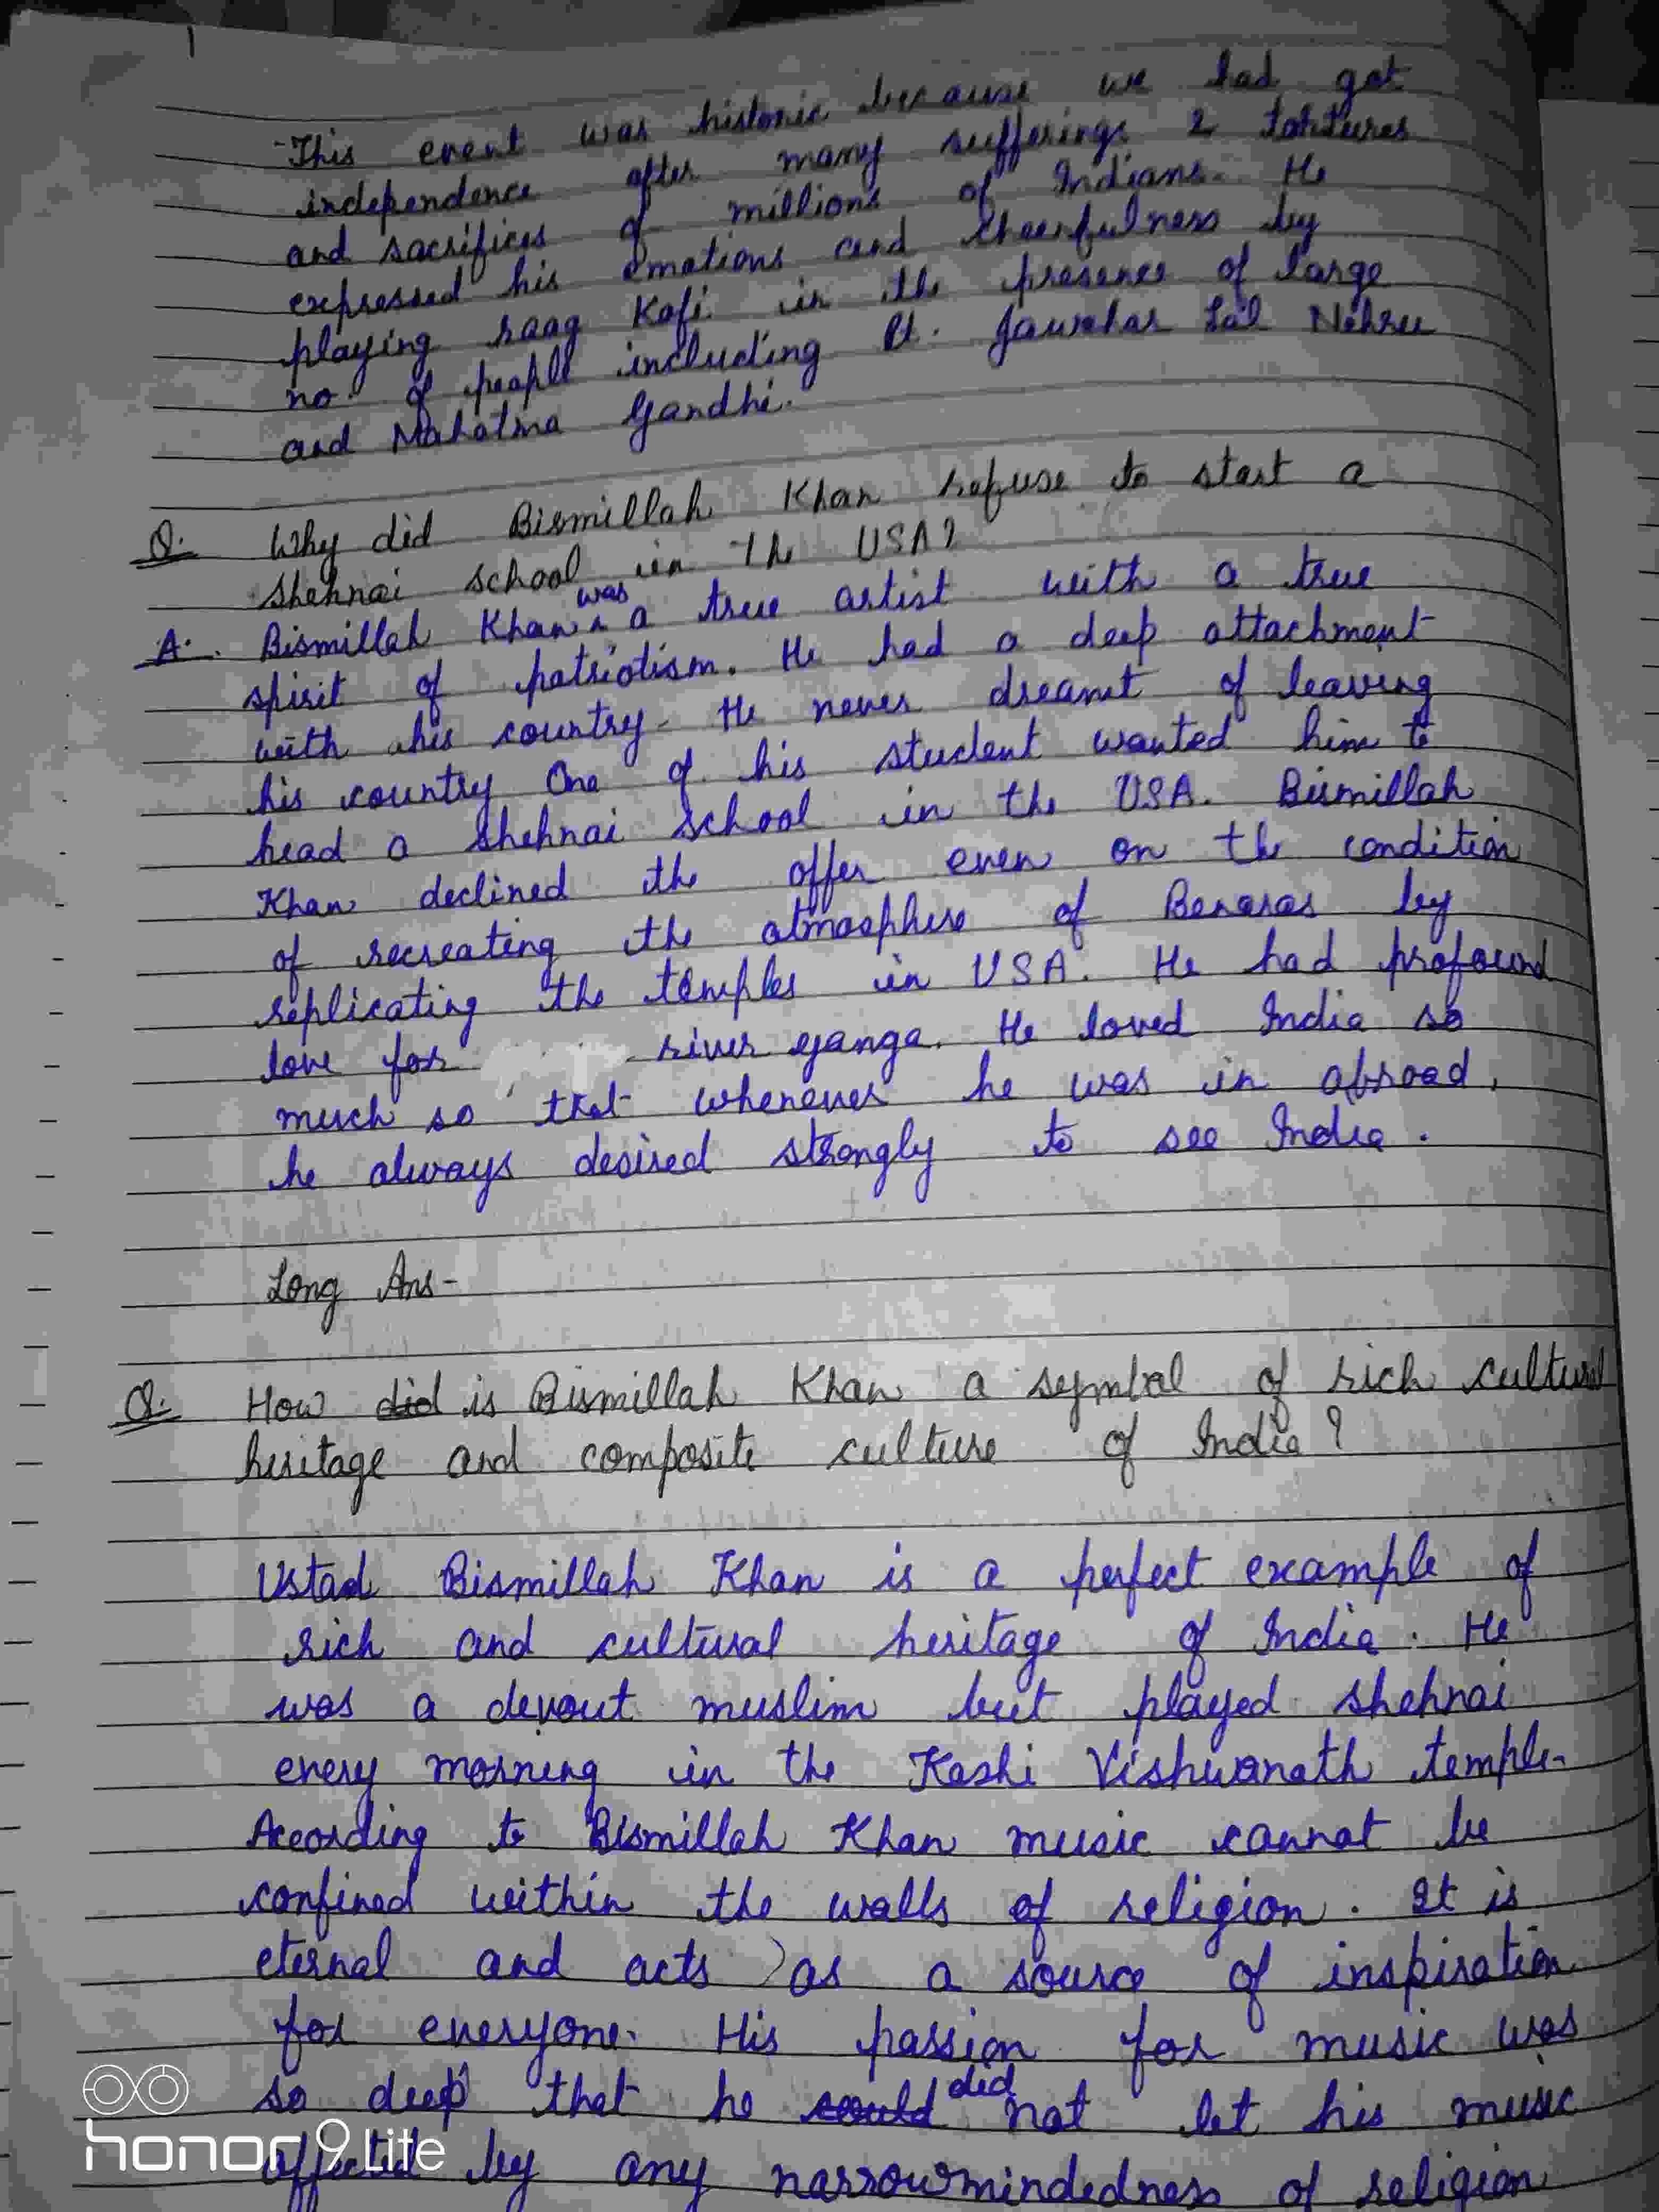 1
This event was historic because we had got
independence after many sufferings & tortures
and sacrifices of millions of Indians. He
expressed his emotions and cheerfulness by
playing raag Kafi in the presence of large
no. of people including Pt. Jawahar Lal Nehru
and Mahatma Gandhi.
Q. Why did Bismillah Khan refuse to start a
shehnai school in the USA?
A. Bismillah Khan was a true artist with a true
spirit of patriotism. He had a deep attachment
with his country. He never dreamt of leaving
his country One of his student wanted him to
head a shehnai school in the USA. Bismillah
Khan declined the offer even on the condition
of recreating the atmosphere of Benaras by
replicating the temples in USA. He had profound
love for river ganga. He loved India so
much so that whenever he was in abroad,
he always desired strongly to see India.
Long Ans-
Q. How did is Bismillah Khan a symbol of rich cultural
heritage and composite culture of India?
Ustad Bismillah Khan is a perfect example of
rich and cultural heritage of India. He
was a devout muslim but played shehnai
every morning in the Kashi Vishwanath temple.
According to Bismillah Khan music cannot be
confined within the walls of religion. It is
eternal and acts as a source of inspiration
for everyone. His passion for music was
so deep that he could did not let his music
affected by any narrowmindedness of religion
honor 9 Lite